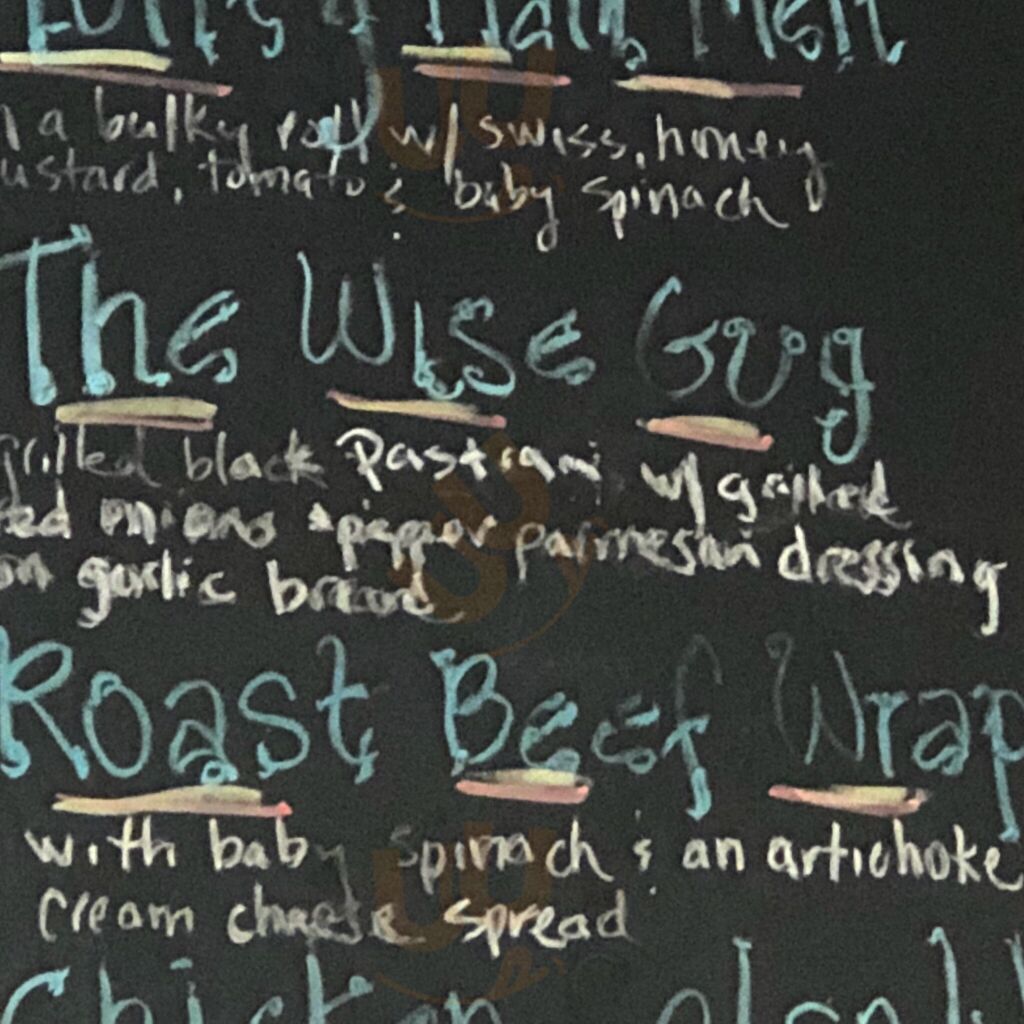 Ham Melt
a bulky roll w/ swiss, honey
ustard, tomato & baby spinach
The Wise Guy
grilled black pastrami w/ grilled
ed onions & pepper parmesan dressing
on garlic bread
Roast Beef Wrap
with baby spinach & an artichoke
cream cheese spread
Chicken